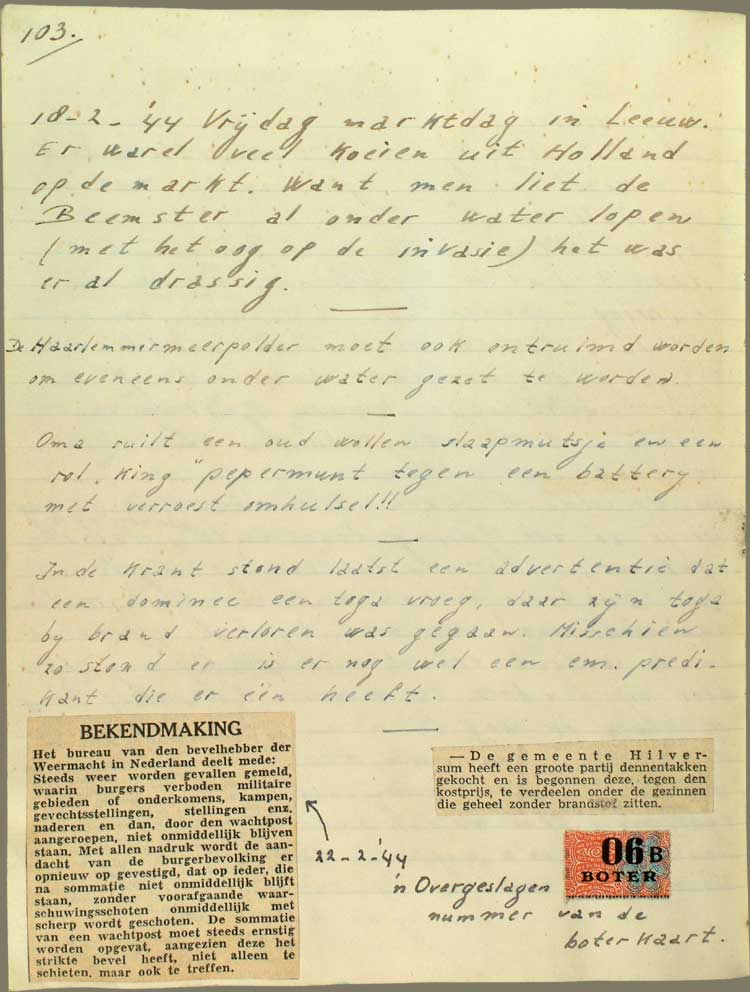 103.
18-2-'44 Vrijdag marktdag in Leeuw.
Er waren veel koeien uit Holland
op de markt. Want men liet de
Beemster al onder water lopen
(met het oog op de invasie) het was
er al drassig.
De Haarlemmermeerpolder moet ook ontruimd worden
om eveneens onder water gezet te worden.
Oma ruilt een oud wollen slaapmutsje en een
rol „King" pepermunt tegen een battery
met verroest omhulsel!!
In de krant stond laatst een advertentie dat
een dominee een toga vroeg, daar zijn toga
by brand verloren was gegaan. Misschien
zo stond er is er nog wel een em. predi-
kant die er één heeft.
BEKENDMAKING
Het bureau van den bevelhebber der
Weermacht in Nederland deelt mede:
Steeds weer worden gevallen gemeld,
waarin burgers verboden militaire
gebieden of onderkomens, kampen,
gevechtsstellingen, stellingen enz.
naderen en dan, door den wachtpost
aangeroepen, niet onmiddellijk blijven
staan. Met allen nadruk wordt de aan-
dacht van de burgerbevolking er
opnieuw op gevestigd, dat op ieder, die
na sommatie niet onmiddellijk blijft
staan, zonder voorafgaande waar-
schuwingsschoten onmiddellijk met
scherp wordt geschoten. De sommatie
van een wachtpost moet steeds ernstig
worden opgevat, aangezien deze het
strikte bevel heeft, niet alleen te
schieten, maar ook te treffen.
— De gemeente Hilver-
sum heeft een groote partij dennentakken
gekocht en is begonnen deze, tegen den
kostprijs, te verdeelen onder de gezinnen
die geheel zonder brandstof zitten.
22-2-'44
06B
BOTER
'n Overgeslagen
nummer van de
boterkaart.